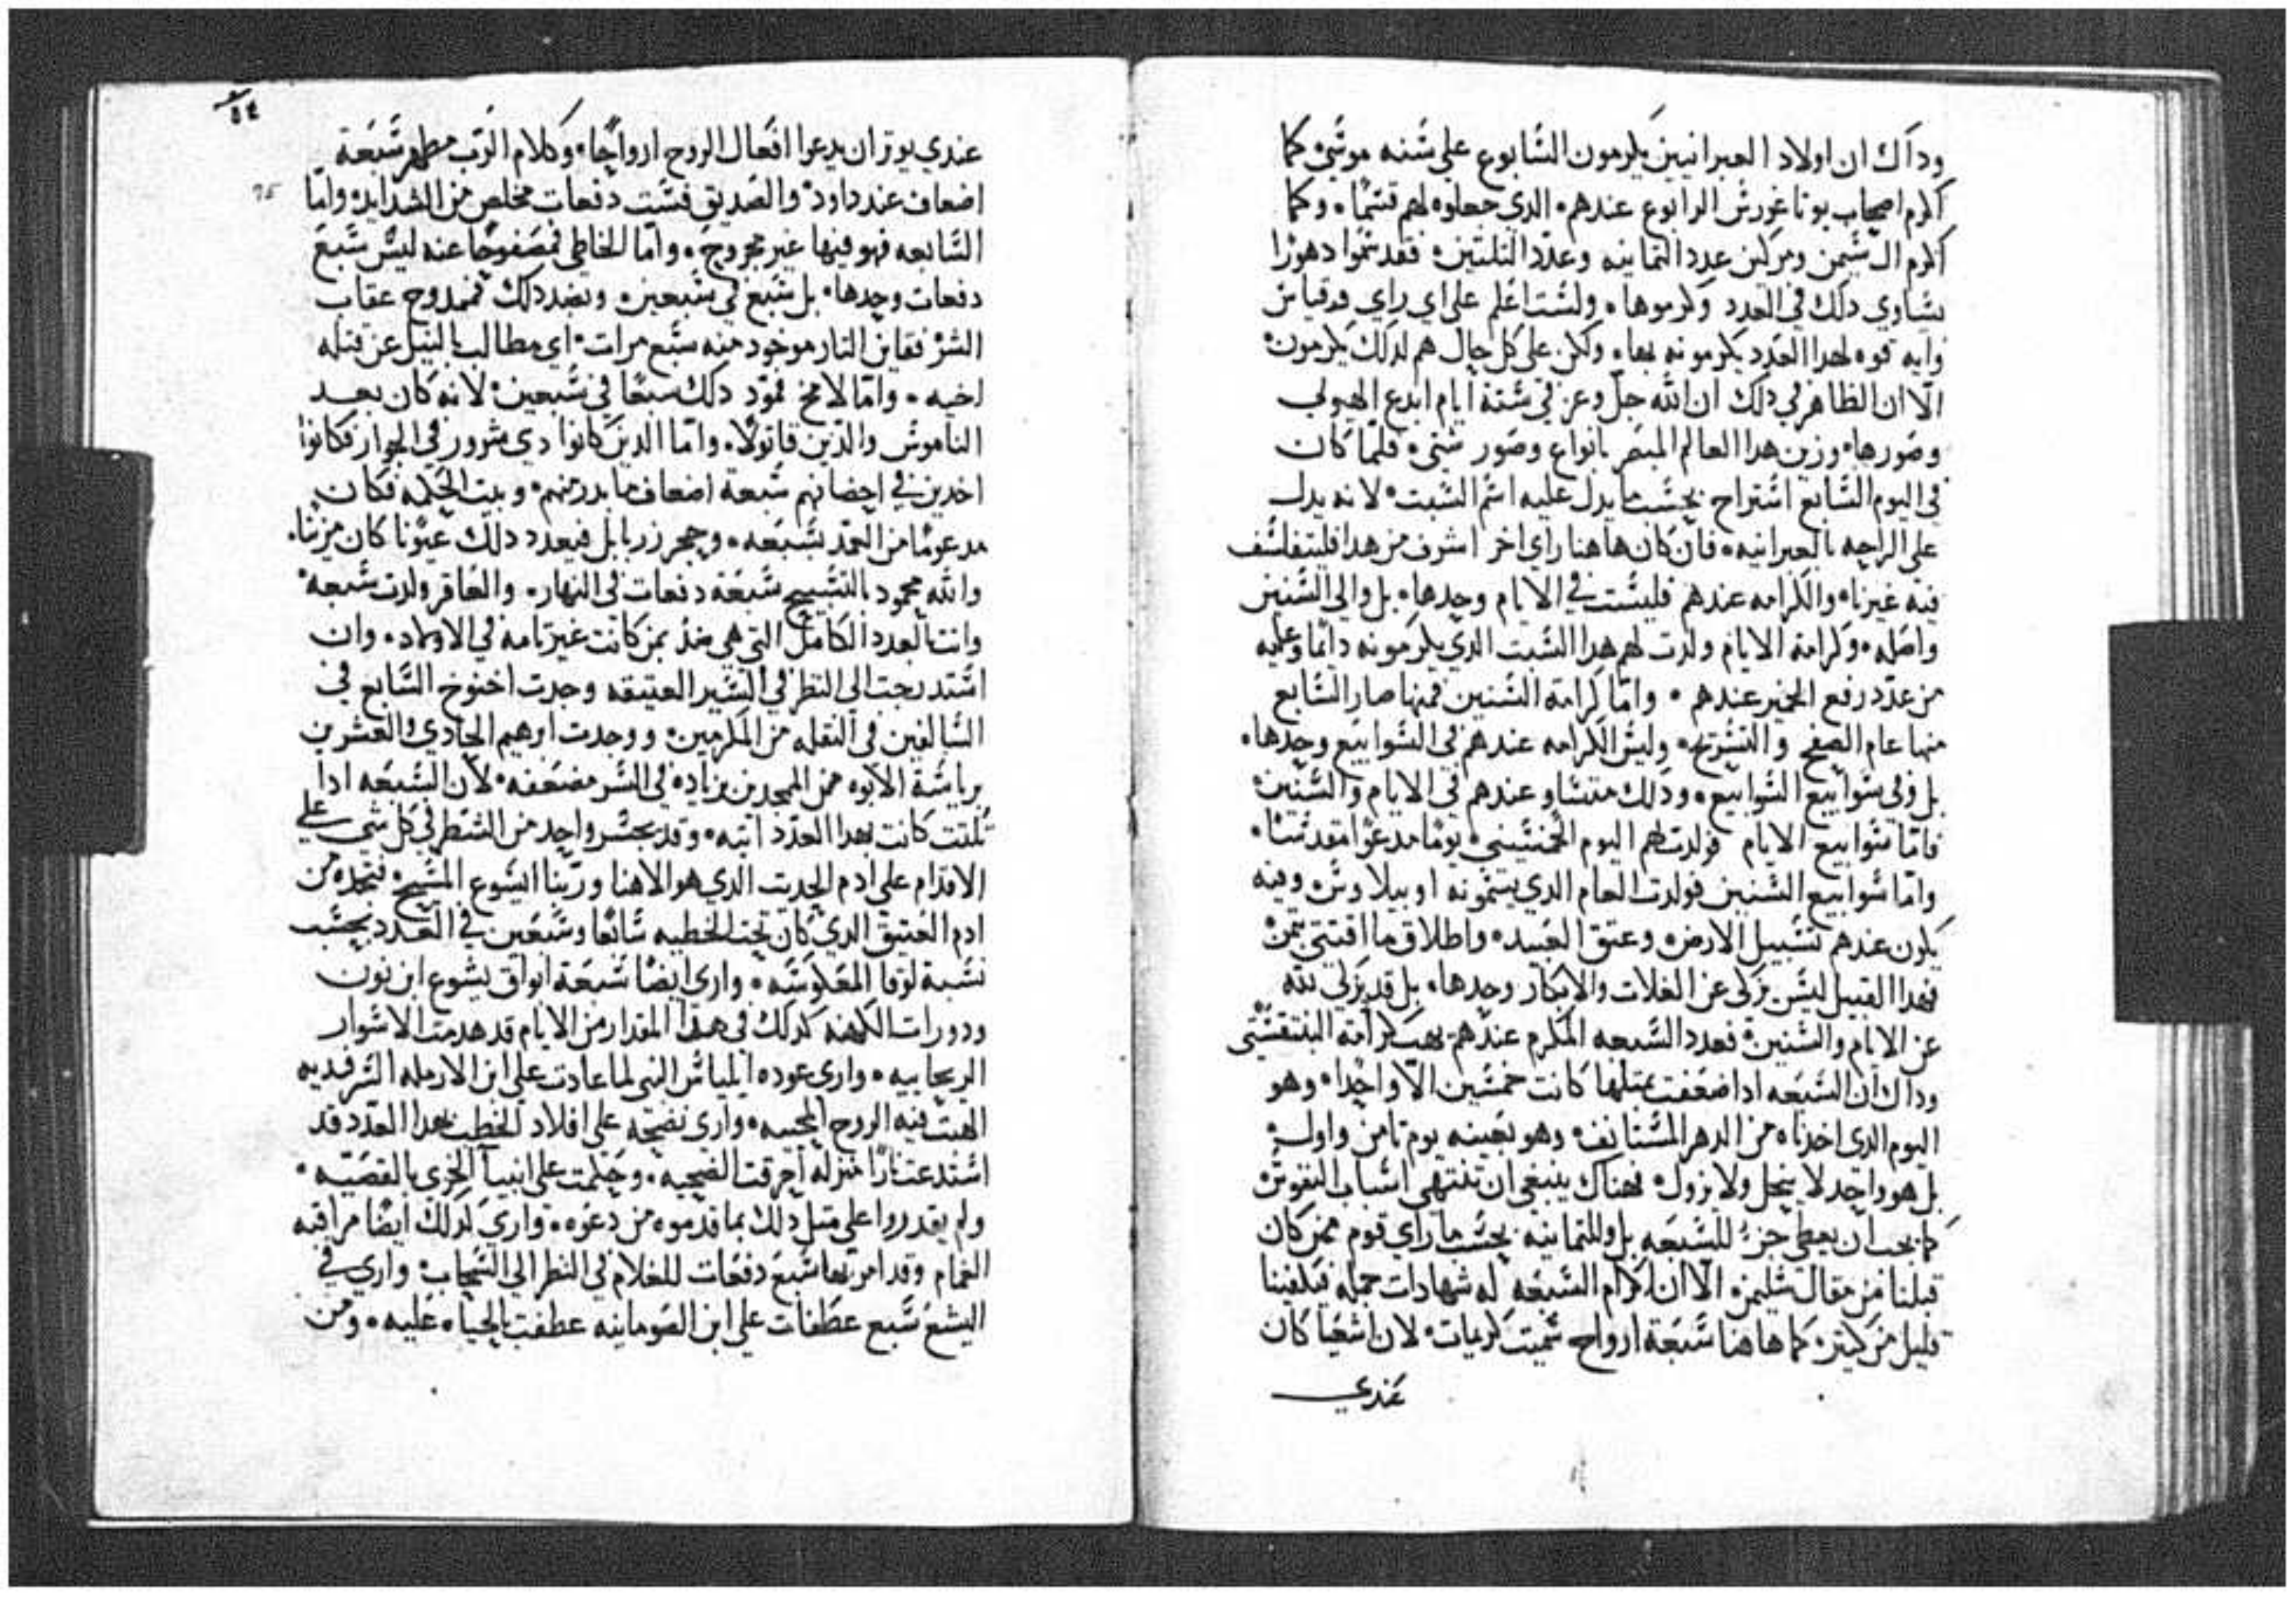 وداك ان اولاد العبرانيين يكرمون السابوع على سنه موسى كما
اكرم اصحاب بوتاغورس الرابوع عندهم الدي جعلوه لهم قسما وكما
اكرم ال سيمن ومركين عدد التمانيه وعدد التلتين فقد سموا دهورا
تساوي دلك في العدد وكرموها ولست اعلم على اي راي وقياس
وايه قوه لهدا العدد يكرمونه بها ولكن على كل حال هم لدلك يكرمون
الا ان الظاهر في دلك ان الله جل وعز في ستة ايام ابدع الهيولي
وصورها وزين هدا العالم المبصر بانواع وصور شتى فلما كان
في اليوم السابع استراح بحسب ما يدل عليه اسم السبت لانه يدل
على الراحه بالعبرانيه فان كان هاهنا راي اخر اشرف من هدا فليتفلسف
فيه غيرنا والكرامه عندهم فليست في الايام وحدها بل والى السنين
واصله وكرامة الايام ولدت لهم هدا السبت الدي يكرمونه دائما وعليه
من عدد رفع الخمير عندهم واما كرامة السنين فمنها صار السابع
منها عام الصفح والتسريح وليس الكرامه عندهم في السوابيع وحدها
بل وفي سوابيع السوابيع ودلك متساو عندهم في الايام والسنين
فاما سوابيع الايام فولدت لهم اليوم الخمسيني يوما مدعوا مقدسا
واما سوابيع السنين فولدت العام الدي يسمونه اوبيلاوس وفيه
يكون عندهم تسبيل الارض وعتق العبيد واطلاق ما اقتني بتمن
فهدا القبيل ليس يزكى عن الغلات والابكار وحدها بل قد يزكي لله
عن الايام والسنين فعدد السبعه المكرم عندهم يهب كرامة البنتقستي
وداك ان السبعه ادا ضعفت بمتلها كانت خمسين الا واحدا وهو
اليوم الدى اخدناه من الدهر المستانف وهو بعينه يوم تامن واول
بل هو واحد لا ينحل ولا يزول فهناك ينبغي ان تنتهي اسباب النفوس
كما يجب ان يعطى جزء للسبعه بل وللتمانيه بحسب ما راي قوم ممن كان
قبلنا من مقال سليمن الا ان اكرام السبعه له شهادات جمله فيكفينا
قليل من كتير كما هاهنا سبعة ارواح سميت كريمات لان اشعيا كان
عندي
٥٤
عندي يوتر ان يدعوا افعال الروح ارواحا وكلام الرب مطهر سبعة
اضعاف عند داود والصديق فست دفعات مخلص من الشدايد واما
السابعه فهو فيها غير مجروح واما الخاطي فمصفوحا عنه ليس سبع
دفعات وحدها بل سبع في سبعين وبضد دلك فممدوح عقاب
الشر فقاين التار موخود منه سبع مرات اي مطالب بالنيل عن قتله
اخيه واما لامخ فمود دلك سبعا في سبعين لانه كان بعد
الناموس والدين قاتولا واما الدين كانوا دي شرور في الجوار فكانوا
اخدين في احضانهم سبعة اضعاف ما بدر منهم وبيت الحكمه فكان
مدعوما من العمد بسبعه وحجر زربابل فبعدد دلك عيونا كان مزينا
والله محمود بالتسبيح سبعة دفعات في النهار والعاقر ولدت سبعه
وانت العدد الكامل التي هي ضد بمن كانت غير تامه في الاولاد وان
استدرجت الى النظر في السير العتيقه وجدت اخنوخ السابع في
السالفين في النقله من المكرمين ووجدت ابرهيم الحادي والعشرين
برياسة الابوه ممن المجدين بزياده في السر مضعفه لان السبعه ادا
تلتت كانت بهدا العدد اتيه وقد يجسر واحد من الشطر في كل شي على
الاقدام على ادم الحديت الدي هو الاهنا وربنا ايسوع المسيح فتجده من
ادم العتيق الدي كان تحت الخطيه سابعا وسبعين في العدد بحسب
نسبة لوقا المعكوسه وارى ايضا سبعة ابواق يشوع ابن نون
ودورات الكهنه كدلك في هدا المقدار من الايام قد هدمت الاسوار
الريحانيه وارى عوده ايلياس النبي لما عادت على ابن الارمله السرفديه
الهبت فيه الروح المحييه وارى نضحته على افلاد الحطب بهدا العدد قد
استدعت نارا منزله احرقت الضحيه وحكمت على انبيا الخزي بالقصيه
ولم يقدروا على متل دلك بما قدموه من دعوه وارى لدلك ايضا مراقبه
الغمام وقد امر بها سبع دفعات للغلام في النظر الى السحاب وارى في
اليشع سبع عطفات على ابن الصومانيه عطفت بالحياه عليه ومن